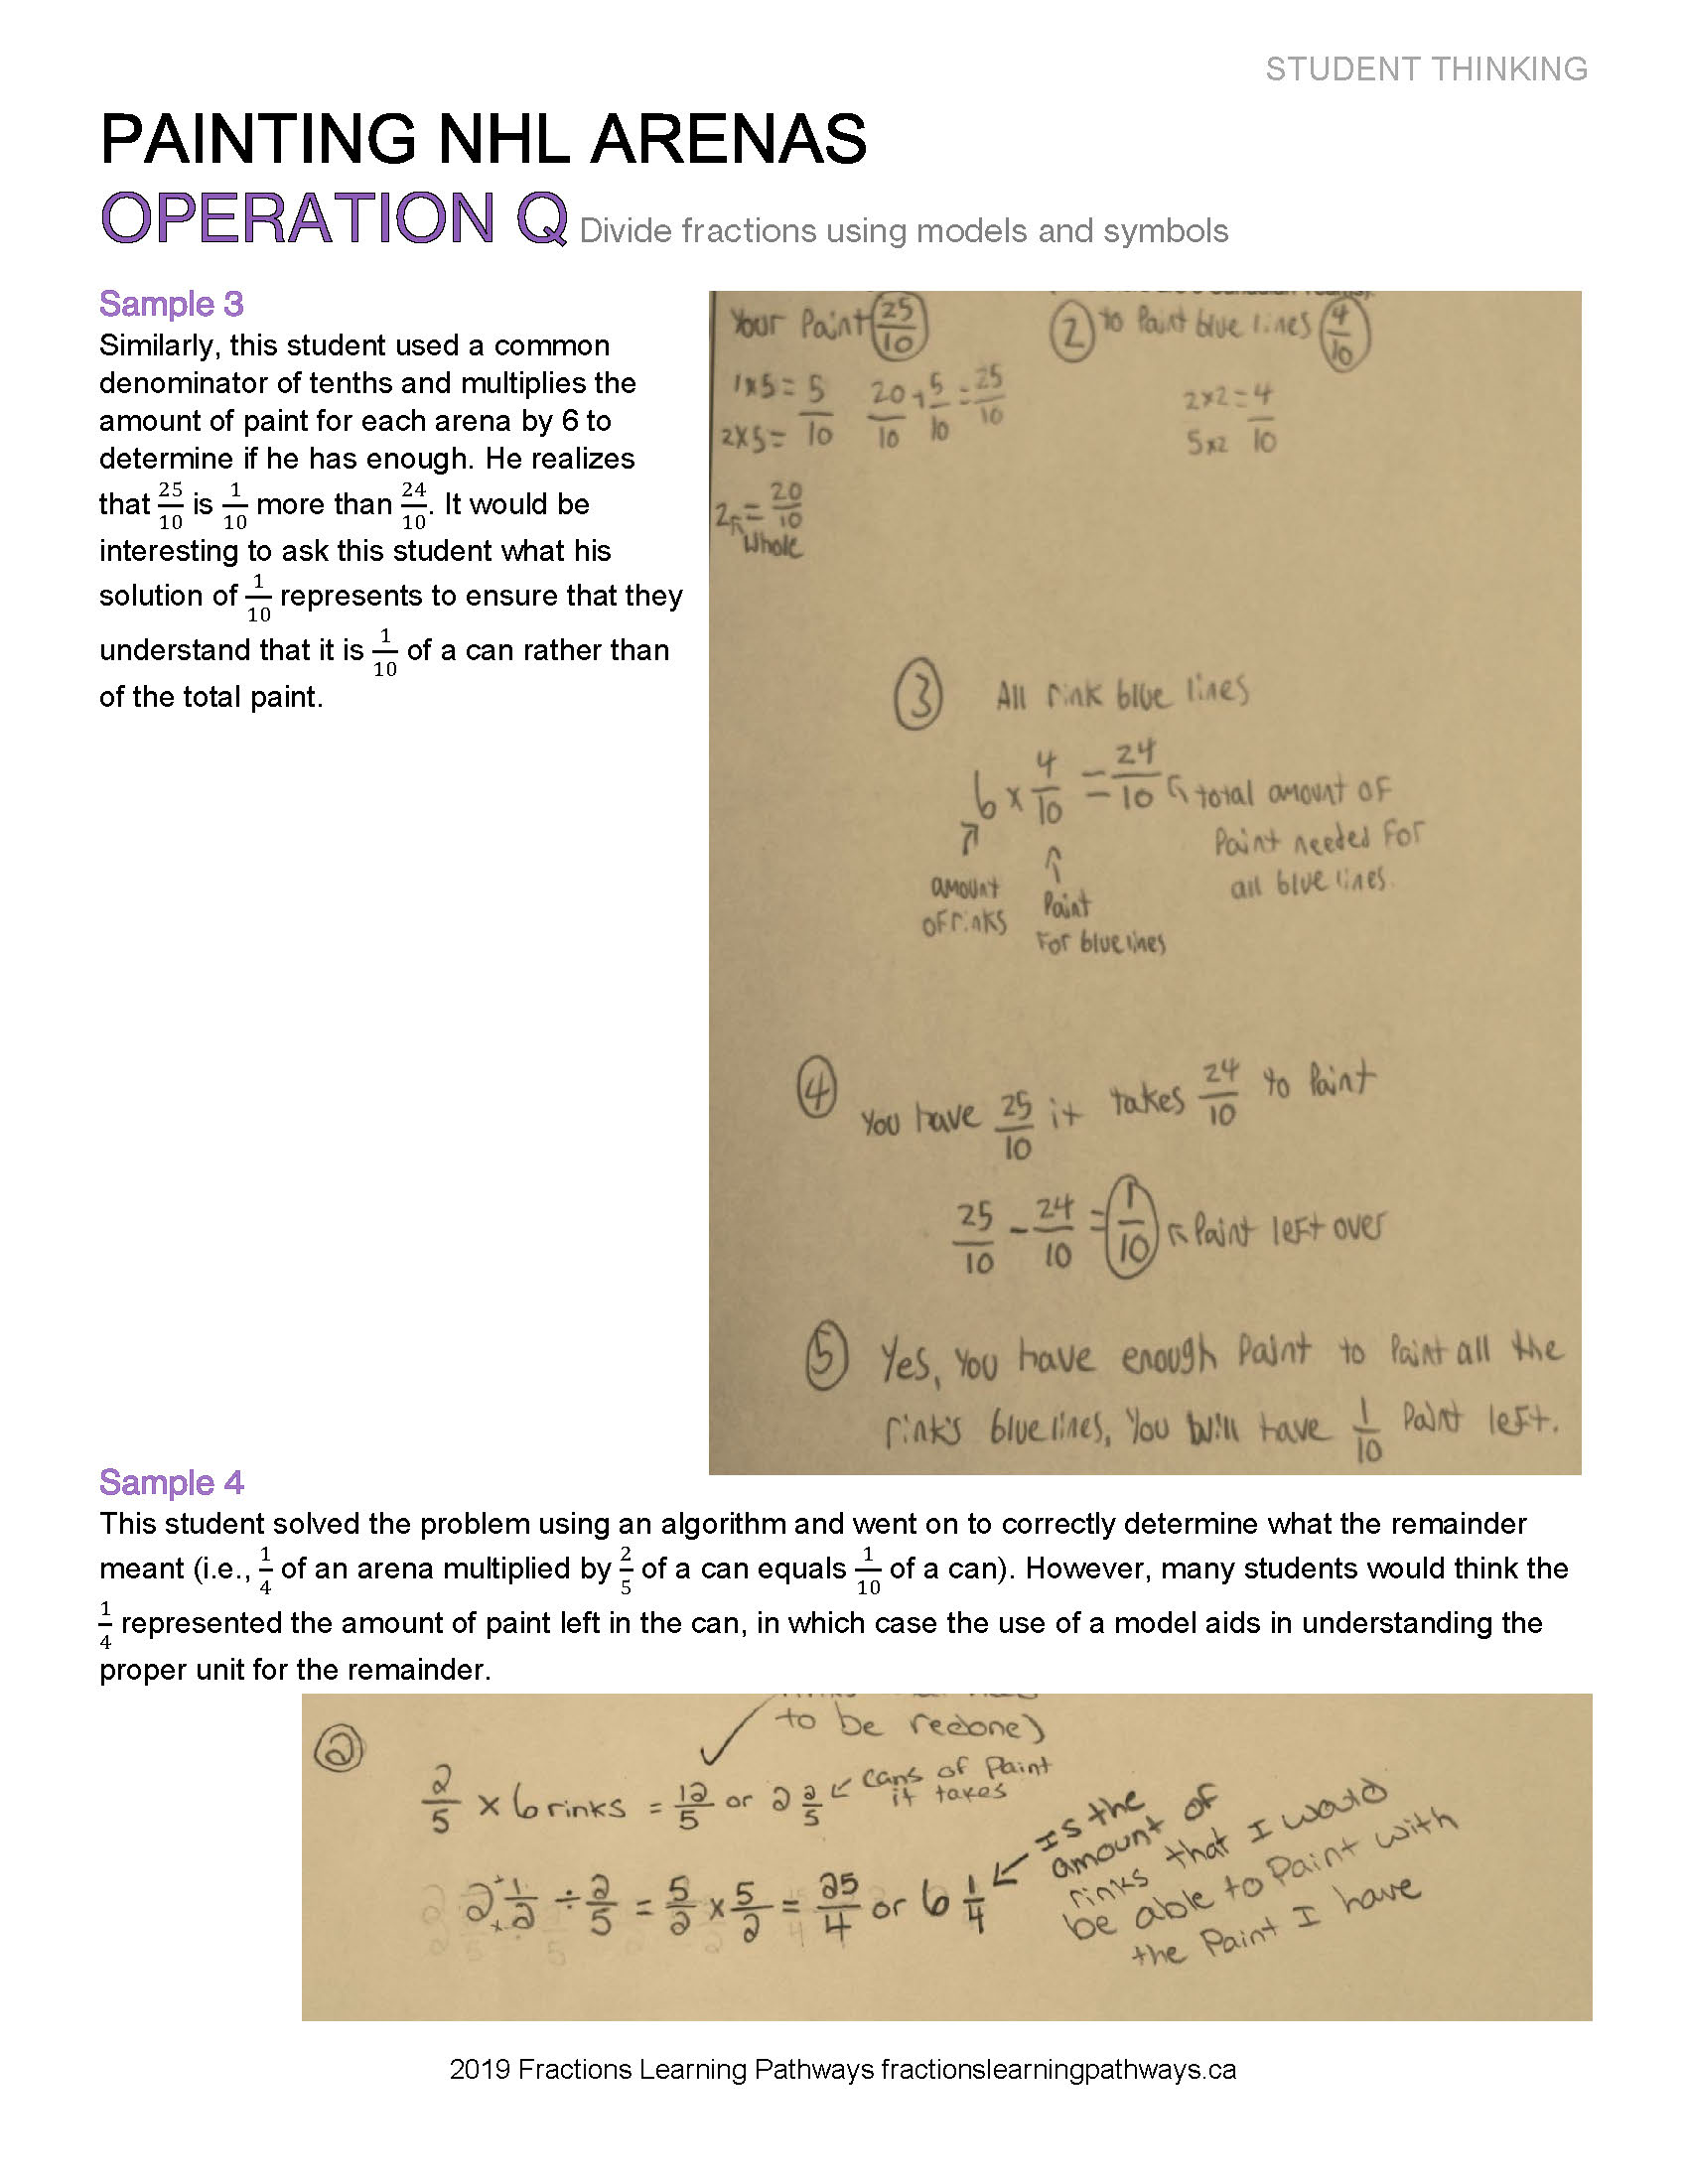 STUDENT THINKING
PAINTING NHL ARENAS
OPERATION Q Divide fractions using models and symbols
Sample 3
Similarly, this student used a common
denominator of tenths and multiplies the
amount of paint for each arena by 6 to
determine if he has enough. He realizes
that 25/10 is 1/10 more than 24/10. It would be
interesting to ask this student what his
solution of 1/10 represents to ensure that they
understand that it is 1/10 of a can rather than
of the total paint.
Your Paint 25/10
1x5= 5
2x5= 10
20/10 + 5/10 = 25/10
2 = 20/10
Whole
2 to Paint blue lines 4/10
2x2=4
5x2 10
3 All rink blue lines
6 x 4/10 = 24/10 total amount of
Paint needed for
all blue lines.
amount
of rinks
Paint
For blue lines
4 You have 25/10 it takes 24/10 to Paint
25/10 - 24/10 = 1/10 Paint left over
5 Yes, You have enough Paint to Paint all the
rink's blue lines, You will have 1/10 Paint left.
Sample 4
This student solved the problem using an algorithm and went on to correctly determine what the remainder
meant (i.e., 1/4 of an arena multiplied by 2/5 of a can equals 1/10 of a can). However, many students would think the
1/4 represented the amount of paint left in the can, in which case the use of a model aids in understanding the
proper unit for the remainder.
to be redone)
2
2/5 x 6 rinks = 12/5 or 2 2/5 ← cans of Paint
it takes
2 1/2 ÷ 2/5 = 5/2 x 5/2 = 25/4 or 6 1/4 ← Is the
amount of
rinks that I would
be able to Paint with
the Paint I have
2019 Fractions Learning Pathways fractionslearningpathways.ca